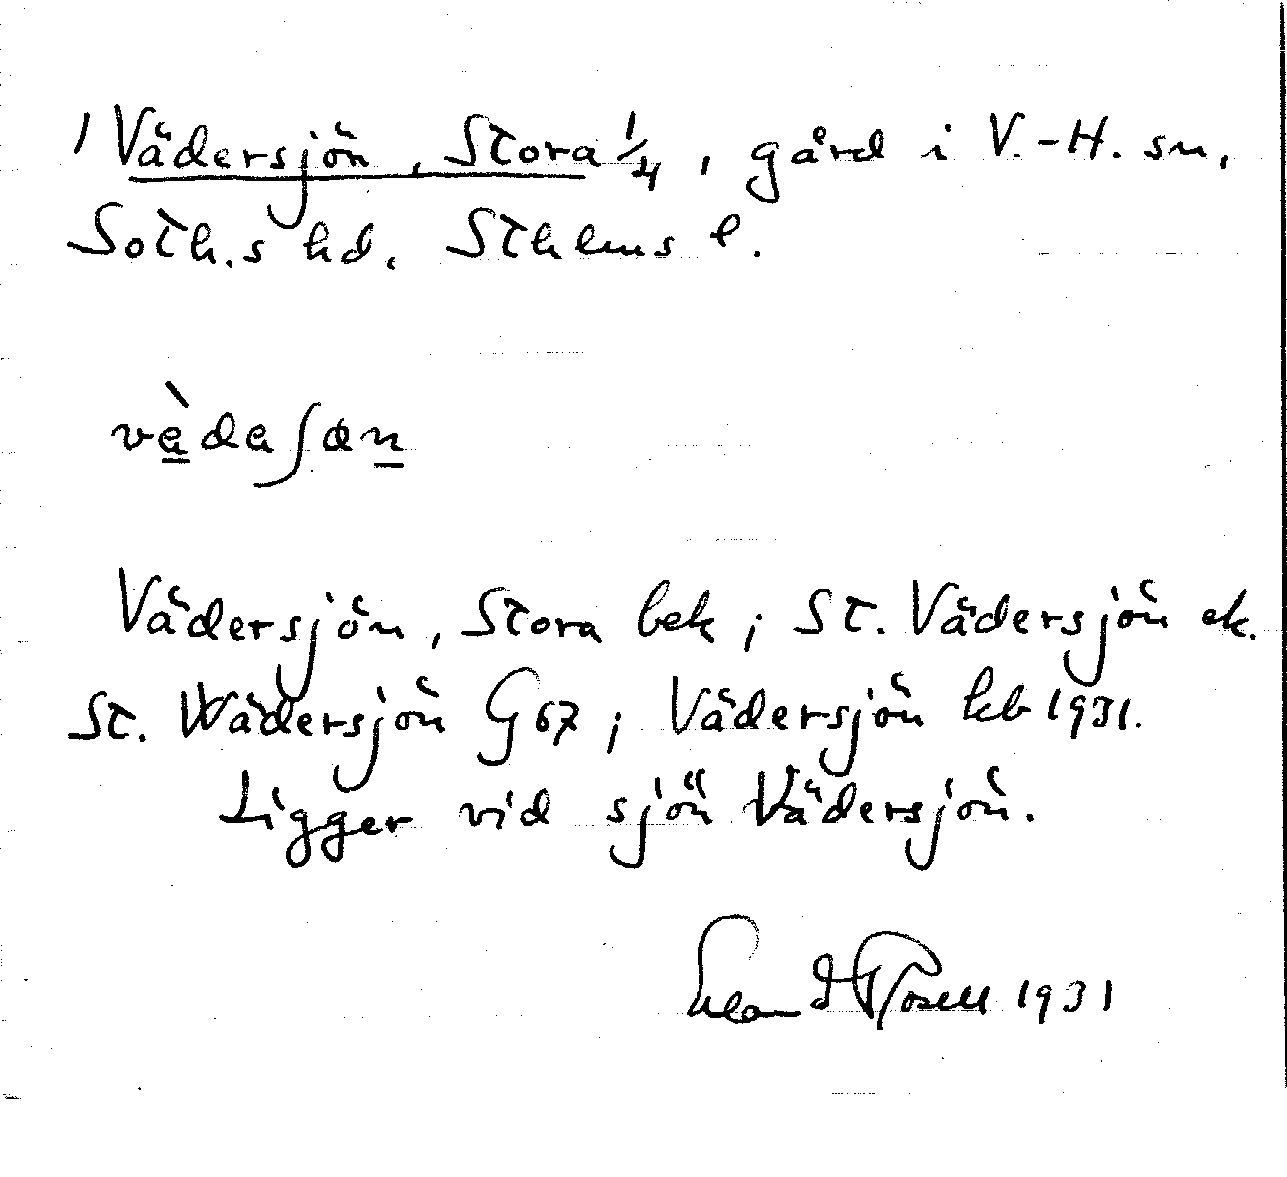 1 Vädersjön, Stora 1/4, gård i V.-H. sn,
Soth.s hd, Sthlms l.
Vädersjön, Stora bek; St. Vädersjön ek.
St. Wädersjön G67; Vädersjön kb 1931.
Ligger vid sjön Vädersjön.
Rosell 1931